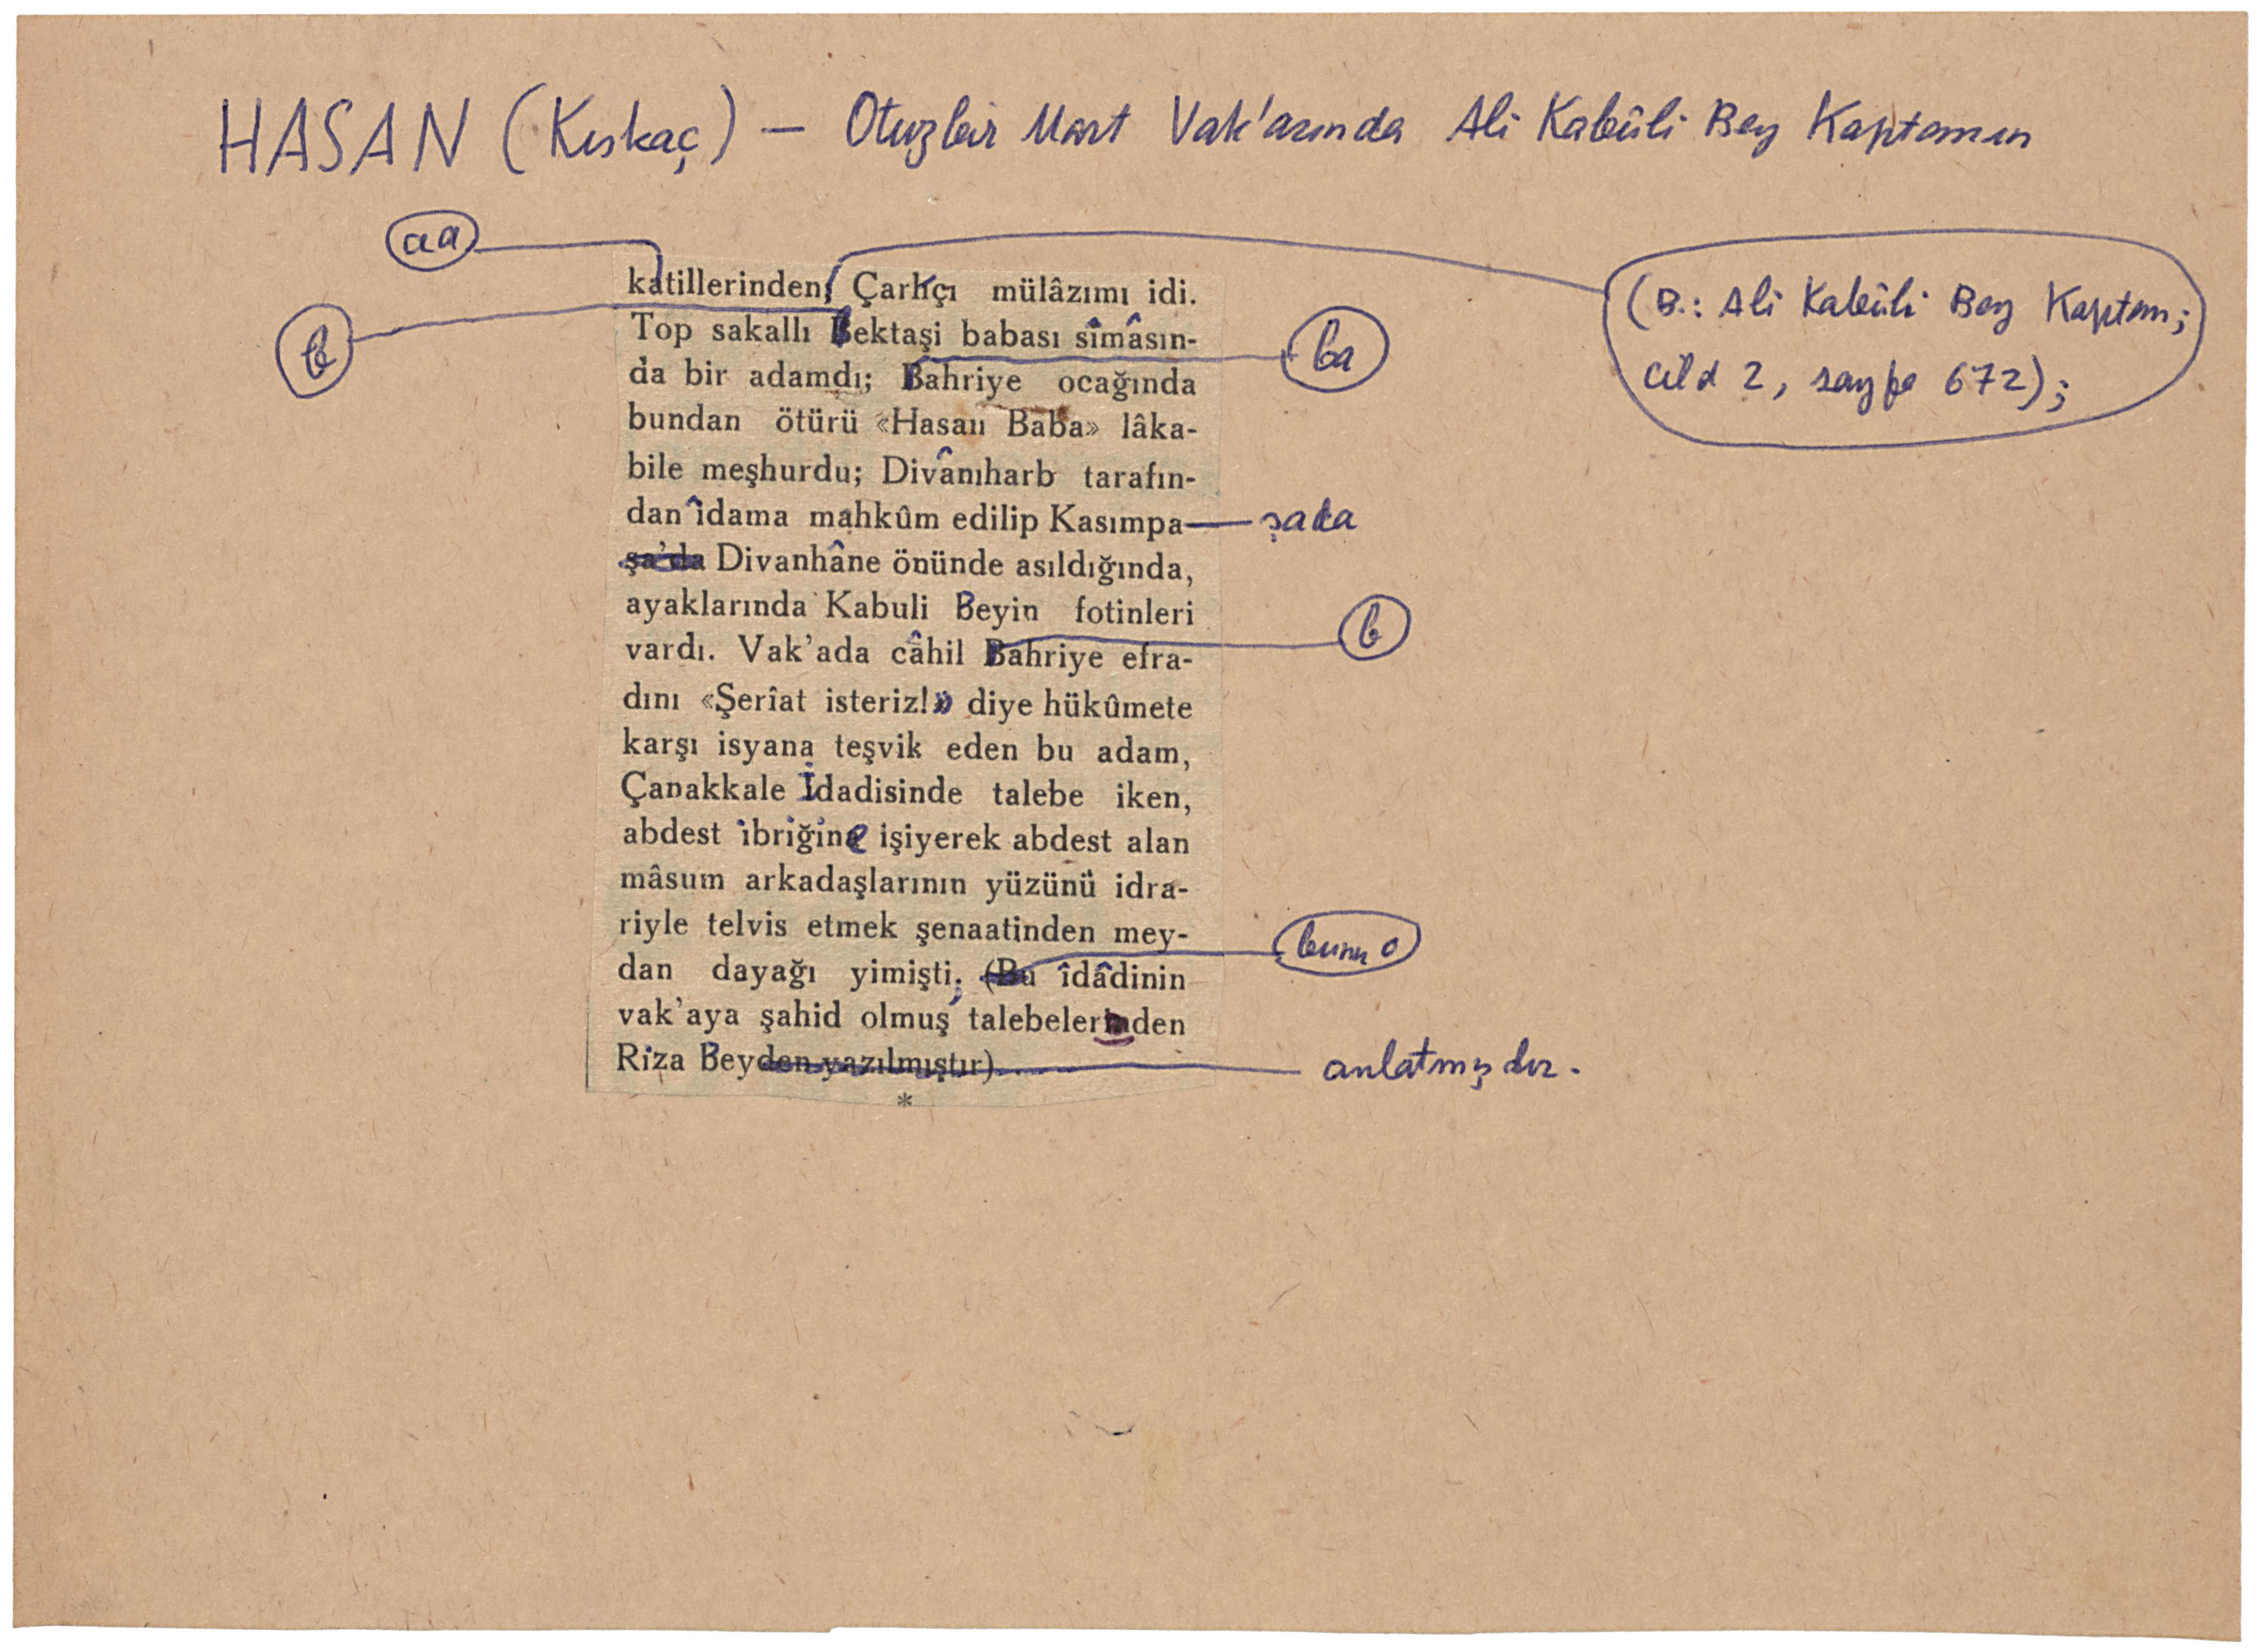 HASAN (Kıskaç) — Otuzbir Mart Vak'asında Ali Kabûli Bey Kaptanın
aa
katillerinden; Çarkçı mülâzımı idi.
(B.: Ali Kabûli Bey Kaptan;
cild 2, sayfa 672);
b
Top sakallı Bektaşi babası sîmâsın-
ba
da bir adamdı; Bahriye ocağında
bundan ötürü «Hasan Baba» lâka-
bile meşhurdu; Divânıharb tarafın-
dan îdama mahkûm edilip Kasımpa- şada
şa'da Divanhâne önünde asıldığında,
ayaklarında Kabuli Beyin fotinleri
b
vardı. Vak'ada câhil Bahriye efra-
dını «Şerîat isteriz!» diye hükûmete
karşı isyana teşvik eden bu adam,
Çanakkale İdadisinde talebe iken,
abdest ibriğine işiyerek abdest alan
mâsum arkadaşlarının yüzünü idra-
riyle telvis etmek şenaatinden mey-
bunu o
dan dayağı yimişti; (Bu îdâdinin
vak'aya şahid olmuş talebelerinden
Riza Beyden yazılmıştır) anlatmışdır.
*